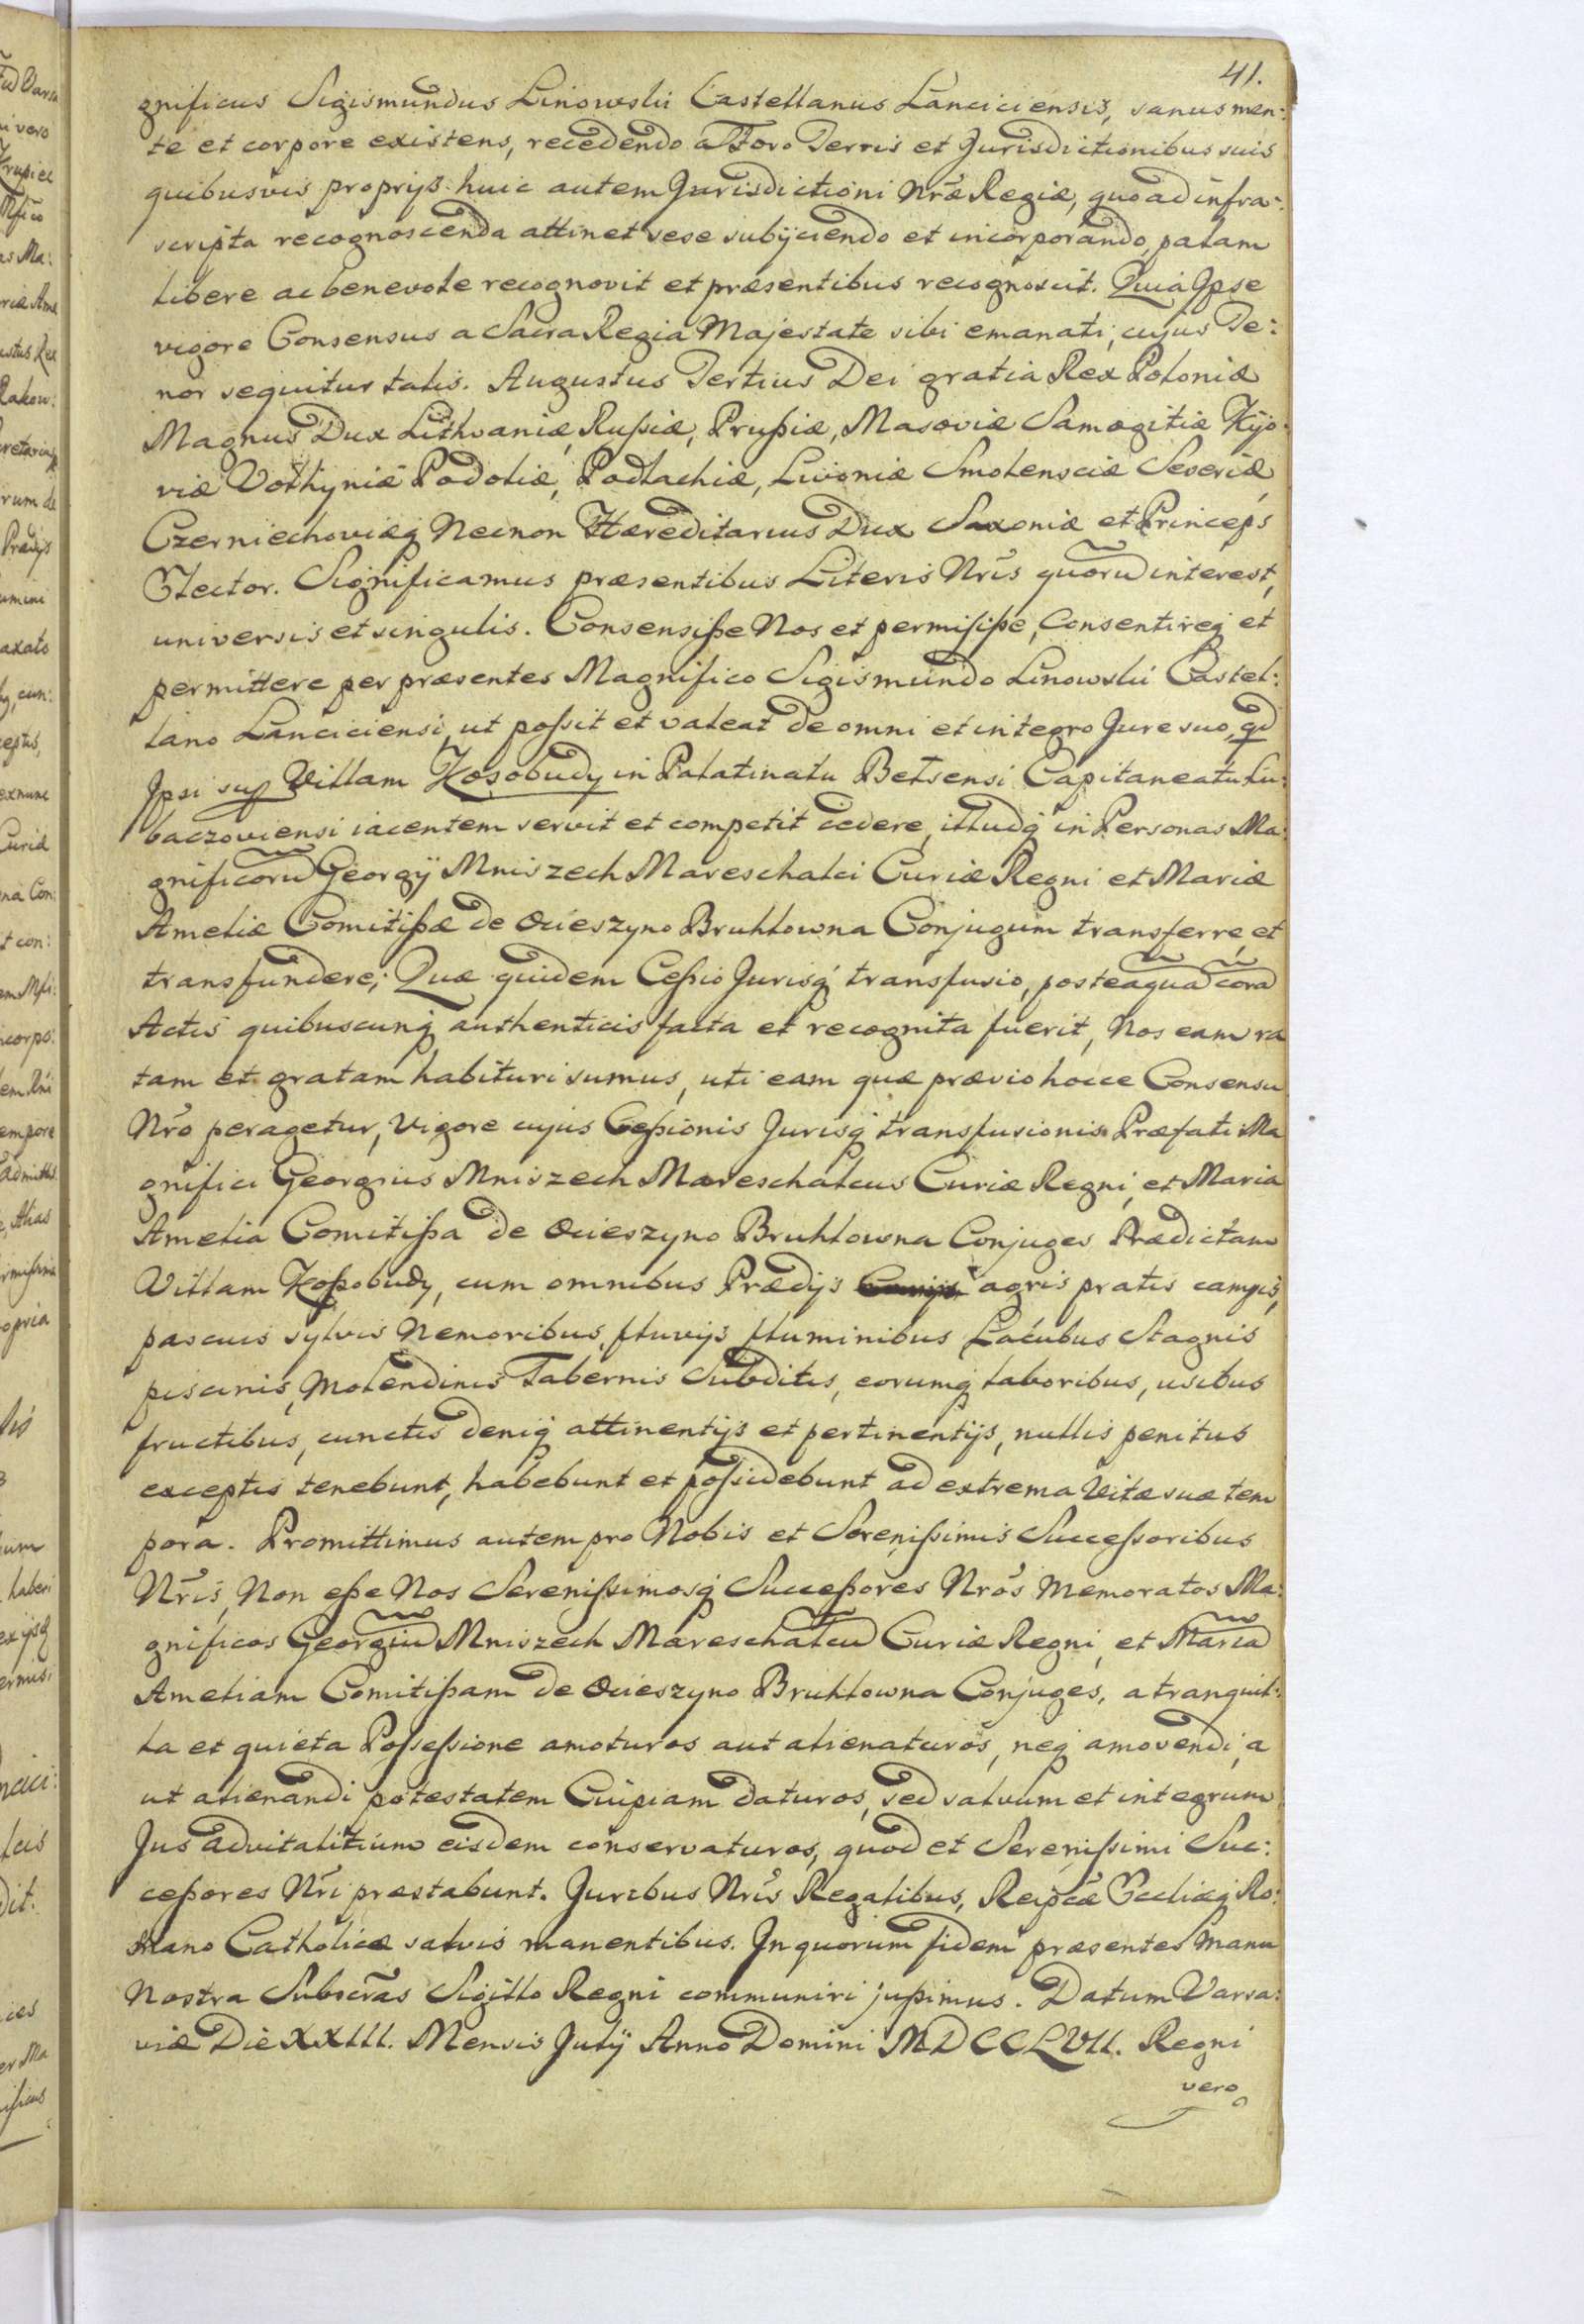 41.
gnificus Sigismundus Linowski Castellanus Lanciciensis, sanus men:
te et corpore existens, recedendo a Foro Terris et Jurisdictionibus suis
quibusvis proprijs huic autem Jurisdictioni Nr̃æ Regiæ, quo ad infra:
scripta recognoscenda attinet sese subijciendo et incorporando, palam
libere ac benevole recognovit et præsentibus recognoscit. Quia Ipse
vigore Consensus a Sacra Regia Majestate sibi emanati, cujus Te:
nor sequitur talis. Augustus Tertius Dei gratia Rex Poloniæ
Magnus Dux Lithvaniæ, Rußiæ, Prußiæ, Masoviæ Samogitiæ Kijo:
viæ Volhyniæ Podoliæ, Podlachiæ, Livoniæ Smolensciæ Severiæ,
Czerniechoviæq̃ Necnon Hæreditarius Dux Saxoniæ et Princeps
Elector. Significamus præsentibus Literis Nr̃is quorũ interest,
universis et singulis. Consensiße Nos et permisiße, Consentireq̃ et
permittere per præsentes Magnifico Sigismundo Linowski Castel:
lano Lanciciensi, ut poßit et valeat de omni et integro Jure suo, qd
Ipsi sup Villam Kosobudy in Palatinatu Belsensi Capitaneatu Lu:
baczoviensi iacentem servit et competit cedere, illudq̃ in Personas Ma:
gnificorũ Georgij Mniszech Mareschalci Curiæ Regni et Mariæ
Ameliæ Comitißæ de Ocieszyno Bruhlowna Conjugum transferre, et
transfundere; Quæ quidem Ceßio Jurisq̃ transfusio, posteaquã corã
Actis quibuscunq̃ authenticis facta et recognita fuerit, Nos eam ra
tam et gratam habituri sumus, uti eam quæ prævio hocce Consensu
Nr̃o peragetur, Vigore cujus Ceßionis Jurisq̃ transfusionis Præfati Ma
gnifici Georgius Mniszech Mareschalcus Curiæ Regni, et Maria
Amelia Comitißa de Ocieszyno Bruhlowna Conjuges Prædictam
Villam Koßobudy, cum omnibus Prædijs agris pratis campis,
pascuis sylvis Nemoribus, fluvijs fluminibus Lacubus Stagnis
piscinis, Molendinis Tabernis Subditis, eorumq̃ laboribus, usibus
fructibus, cunctis deniq̃ attinentijs et pertinentijs, nullis penitus
exceptis tenebunt, habebunt et poßidebunt ad extrema Vitæ suæ tem
pora. Promittimus autem pro Nobis et Serenißimis Succeßoribus
Nr̃is, Non eße Nos Serenißimosq̃ Succeßores Nr̃os Memoratos Ma:
gnificos Georgiũ Mniszech Mareschalcũ Curiæ Regni, et Mariã
Ameliam Comitißam de Ocieszyno Bruhlowna Conjuges, a tranquil:
la et quieta Poßeßione amoturos aut alienaturos, neq̃ amovendi, a
ut alienandi potestatem Cuipiam daturos, sed salvum et integrum
Jus advitalitium eisdem conservaturos, quod et Serenißimi Suc:
ceßores Nr̃i præstabunt. Juribus Nr̃is Regalibus, Reipcæ Eccliæq̃ Ro:
mano Catholicæ salvis manentibus. In quorum fidem præsentes Manu
Nostra Subscr̃as Sigillo Regni communiri jußimus. Datum Varsa:
viæ Die XXIII. Mensis Julij Anno Domini MDCCLVII. Regni
vero